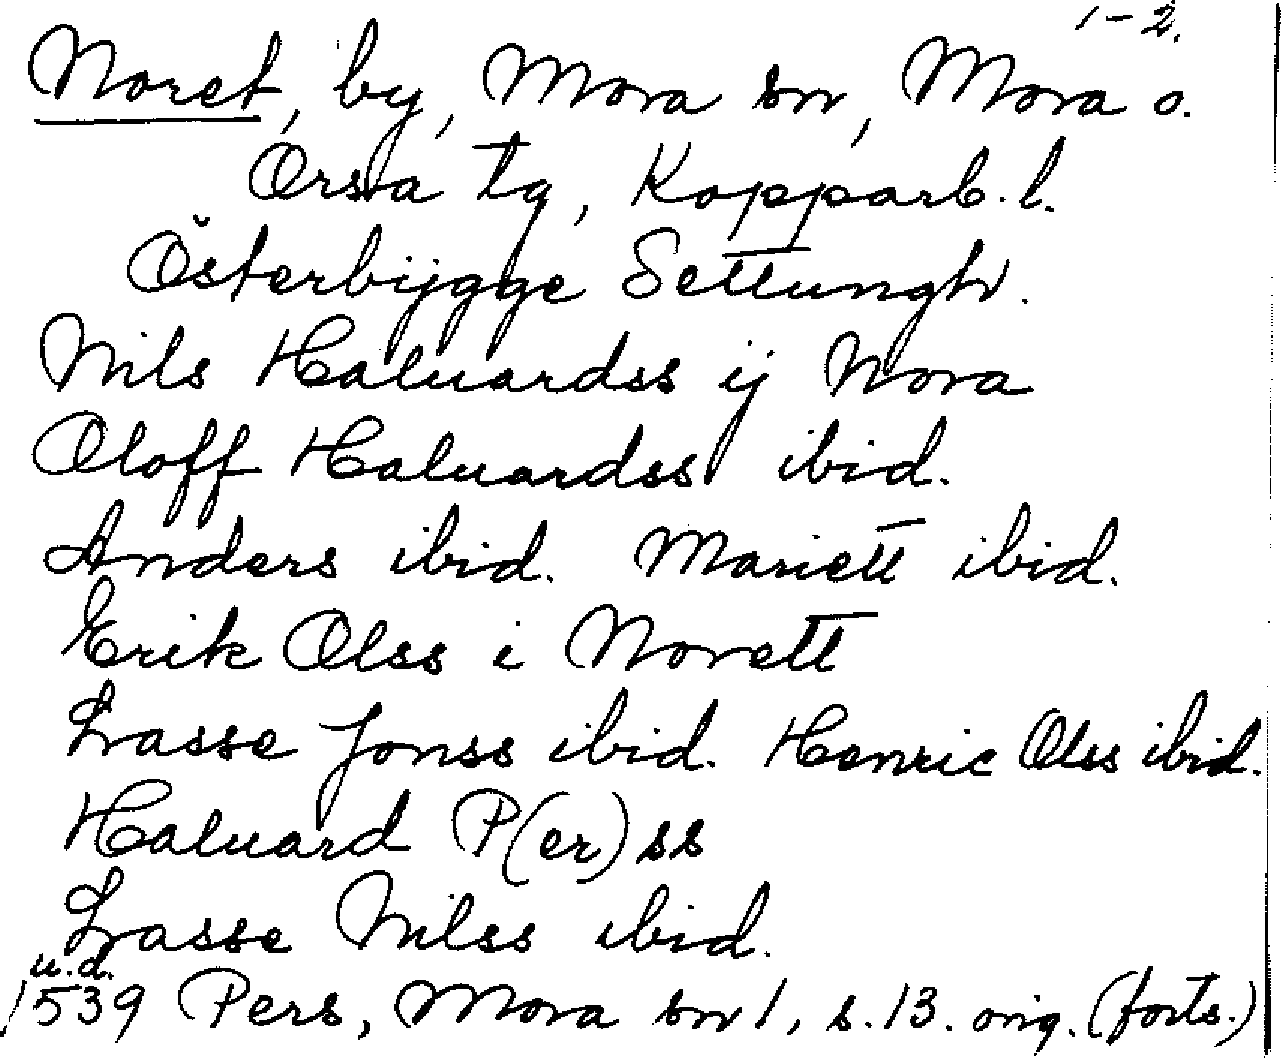 1-2.
Noret, by, Mora sn, Mora o.
Orsa tg, Kopparb. l.
Österbijgge Settungh.
Nils Haluardss ij Nora
Oloff Haluardss ibid.
Anders ibid. Mariett ibid.
Erik Olss i Norett
Lasse Jonss ibid. Henric Olss ibid.
Haluard P(er)ss
Lasse Nilss ibid.
u.d.
1539 Pers, Mora sn 1, s. 13. orig. (forts.)